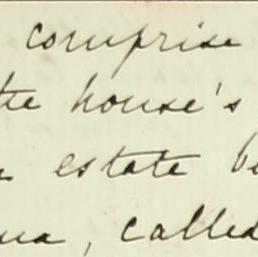 comprise
the house's
estate be
, called